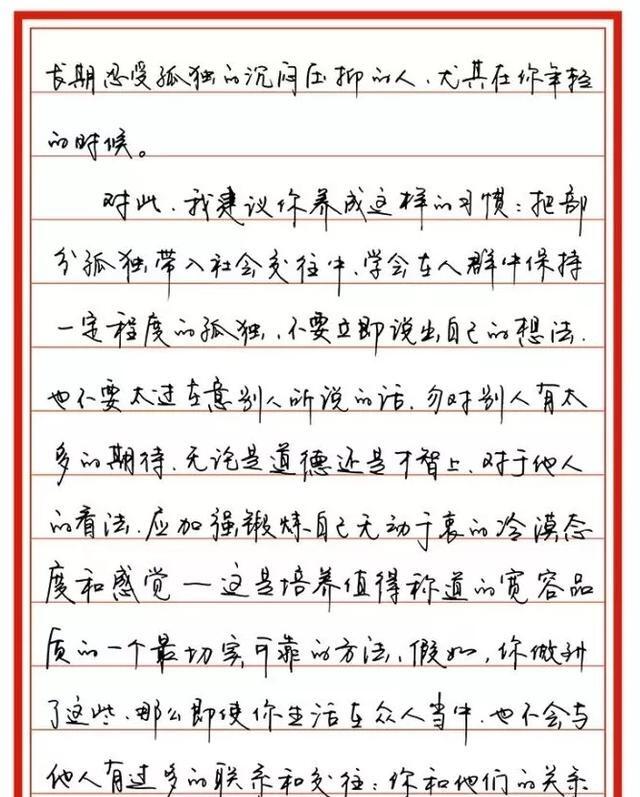 长期忍受孤独的沉闷压抑的人、尤其在你年轻
的时候。
对此、我建议你养成这样的习惯：把部
分孤独带入社会交往中、学会在人群中保持
一定程度的孤独、不要立即说出自己的想法、
也不要太过在意别人所说的话、勿对别人有太
多的期待、无论是道德还是才智上、对于他人
的看法、应加强锻炼自己无动于衷的冷漠态
度和感觉—这是培养值得称道的宽容品
质的一个最切实可靠的方法、假如、你做到
了这些、那么即使你生活在众人当中、也不会与
他人有过多的联系和交往；你和他们的关系